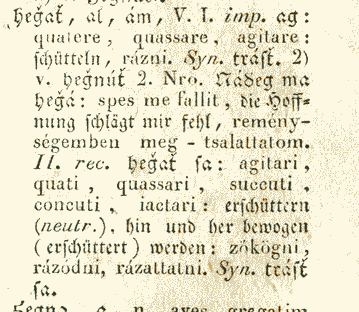 ȟegať, al, ám, V. I. imp. ag:
quatere, quassare, agitare:
schütteln, rázni. Syn. trásť. 2)
v. ȟegnúť 2. Nro. Nádeg ma
ȟegá: spes me fallit, die Hoff=
nung schlägt mir fehl, remény-
ségemben meg - tsalattatom.
II. rec. ȟegať sa: agitari,
quati, quassari, succuti,
concuti, iactari: erschüttern
(neutr.), hin und her bewogen
(erschüttert) werden: zökögni,
rázódni, rázattatni. Syn. trásť
sa.